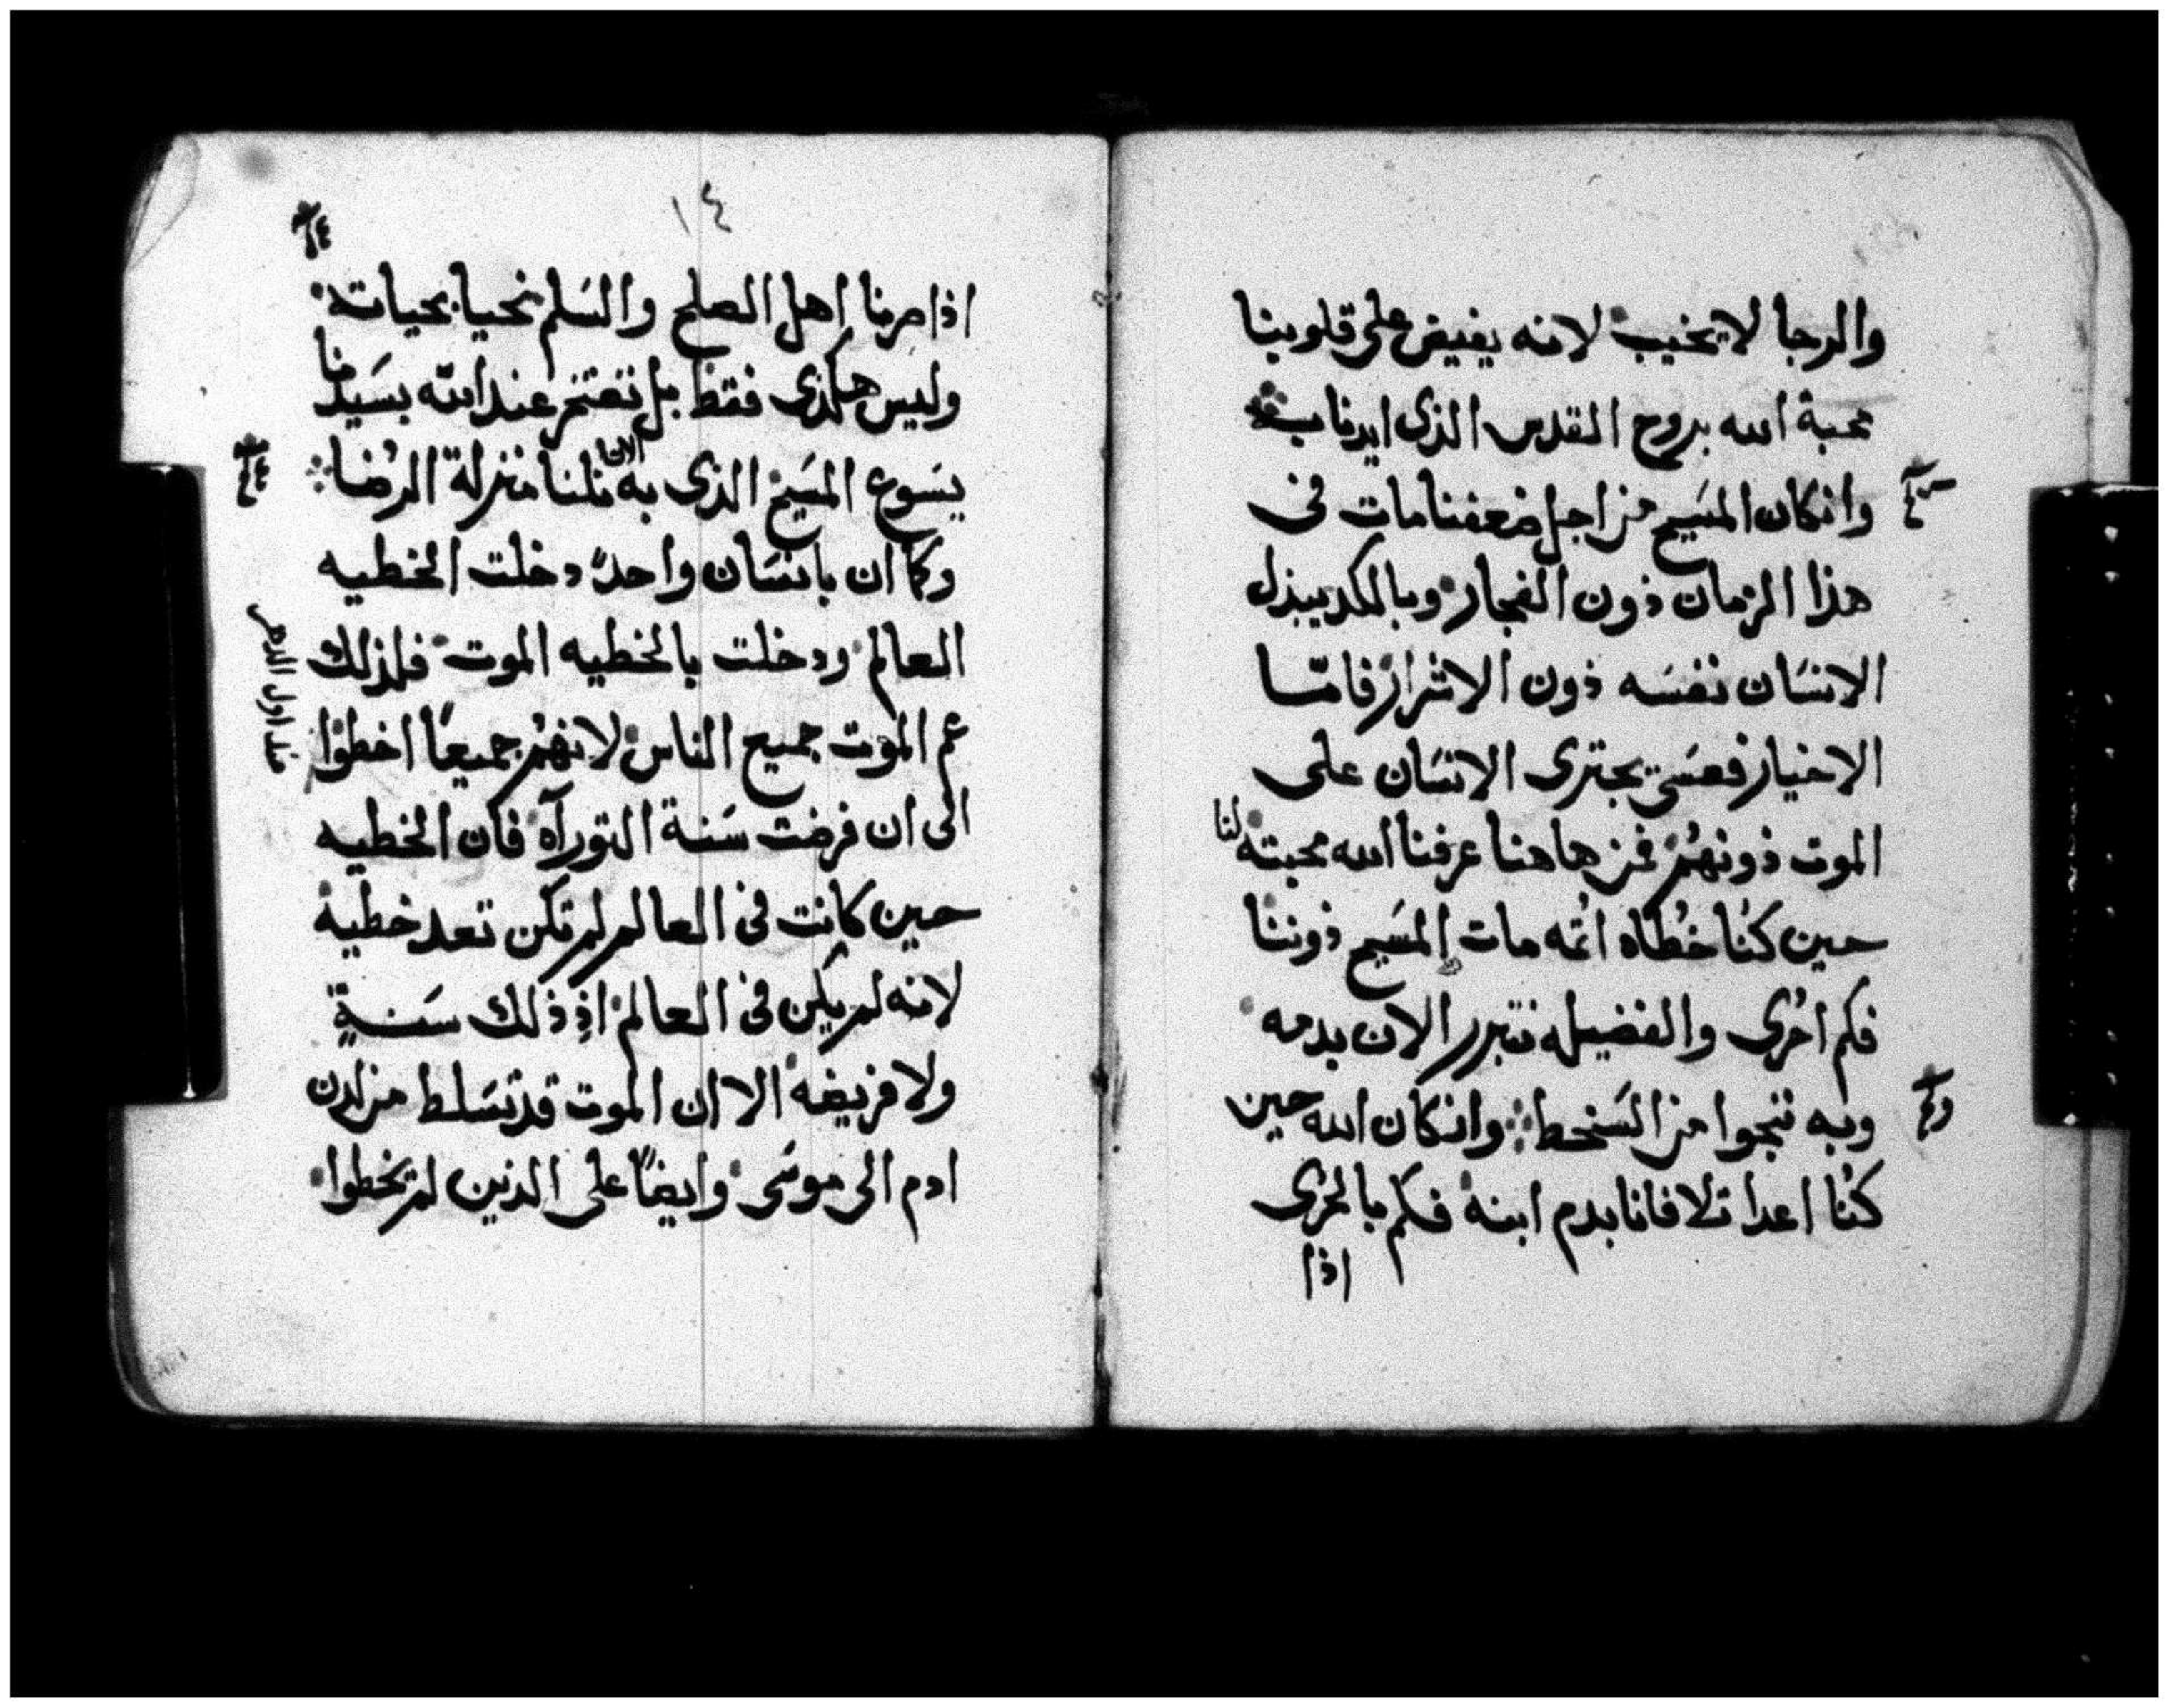 والرجا لا يخيب لانه يفيض على قلوبنا
محبة الله بروح القدس الذى ايدنا به
وانكان المسيح من اجل ضعفنا مات فى
هذا الزمان ذون الفجار وبالكد يبذل
الانسَان نفسَه ذون الاشرار فامّا
الاخيار فعسَى يجترى الانسَان على
الموت ذونهُم فمن هاهنا عرفنا الله محبته لنا
حين كنُا خطُاه اثمه مات المسَيح ذوننا
فكم احرُى والفضيله نتبرر الان بدمه
وبه ننجوا من السَخط وانكان الله حين
كنُا اعدا تلافانا بدم ابنه فكم بالحرُى
اذا
١٤
اذا صرنا اهل الصلح والسَلم نحيا بحياته
وليس هكذى فقط بل نفتخر عند الله بسَيدنا
يسَوع المسَيح الذى به الان نلنا منزلة الرضُا
وكما ان بانسَان واحدً دخلت الخطيه
العالم ودخلت بالخطيه الموت فلذلك
عم الموت جميع الناس لانهُم جميعًا اخطوا
الى ان فرضت سَنة التورآه فان الخطيه
حين كانت فى العالم لم تكن تعد خطية
لانه لم يكن فى العالم اذ ذلك سَنةٍ
ولا فريضه الا ان الموت قد تسَلط من لدن
ادم الى موسَى وايضًا على الذين لم يخطوا